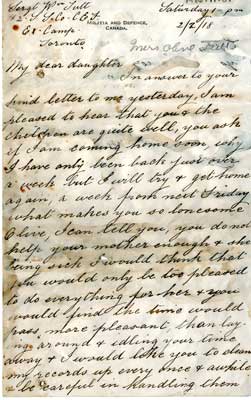 Sergt Wm Tutt
Saturday pm
MILITIA AND DEFENCE,
CANADA.
Ex Camp
2/2/18
Toronto
Mrs Olive Tutt
My dear daughter
In answer to your
kind letter to me yesterday, I am
pleased to hear that you & the
children are quite well, you ask
if I am coming home soon, why
I have only been back just over
a week but I will try & get home
again, a week from next Friday
what makes you so lonesome
Olive, I can tell you, you do not
help your mother enough & she
being sick I would think that
you would only be too pleased
to do everything for her & you
would find the time would
pass more pleasant, than lay
ing around & idling your time
away & I would like you to clean
my records up every once & awhile
& be careful in handling them